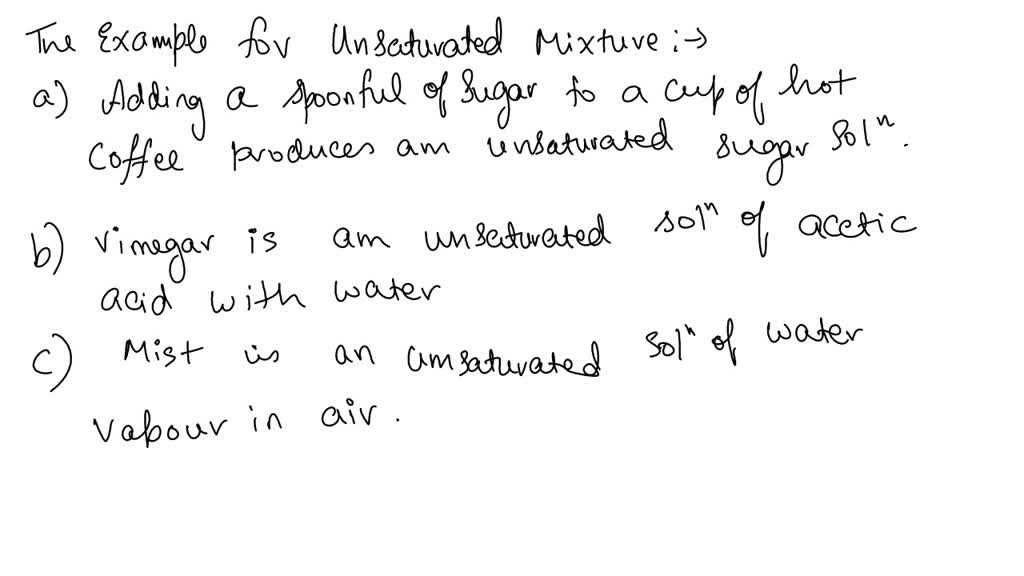 The Example for Unsaturated Mixture :→
a) Adding a spoonful of sugar to a cup of hot
coffee produces am unsaturated sugar Solⁿ.
b) vimegar is am unsaturated solⁿ of acetic
acid with water
c) Mist is an umsaturated solⁿ of water
vabour in air.